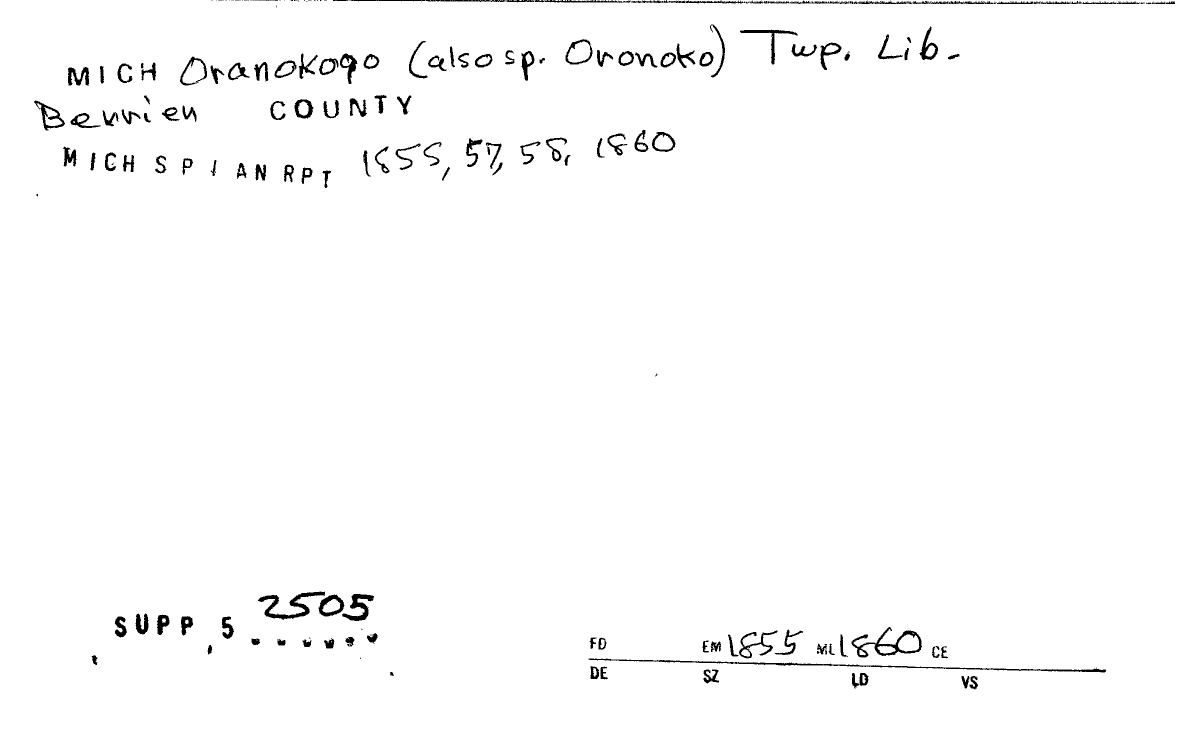 MICH Oranokogo (also sp. Oronoko) Twp. Lib.
Berrien COUNTY
MICH S P I AN RPT 1855, 57, 58, 1860
SUPP, 5 2505
FD EM 1855 ML 1860 CE
DE SZ LD VS